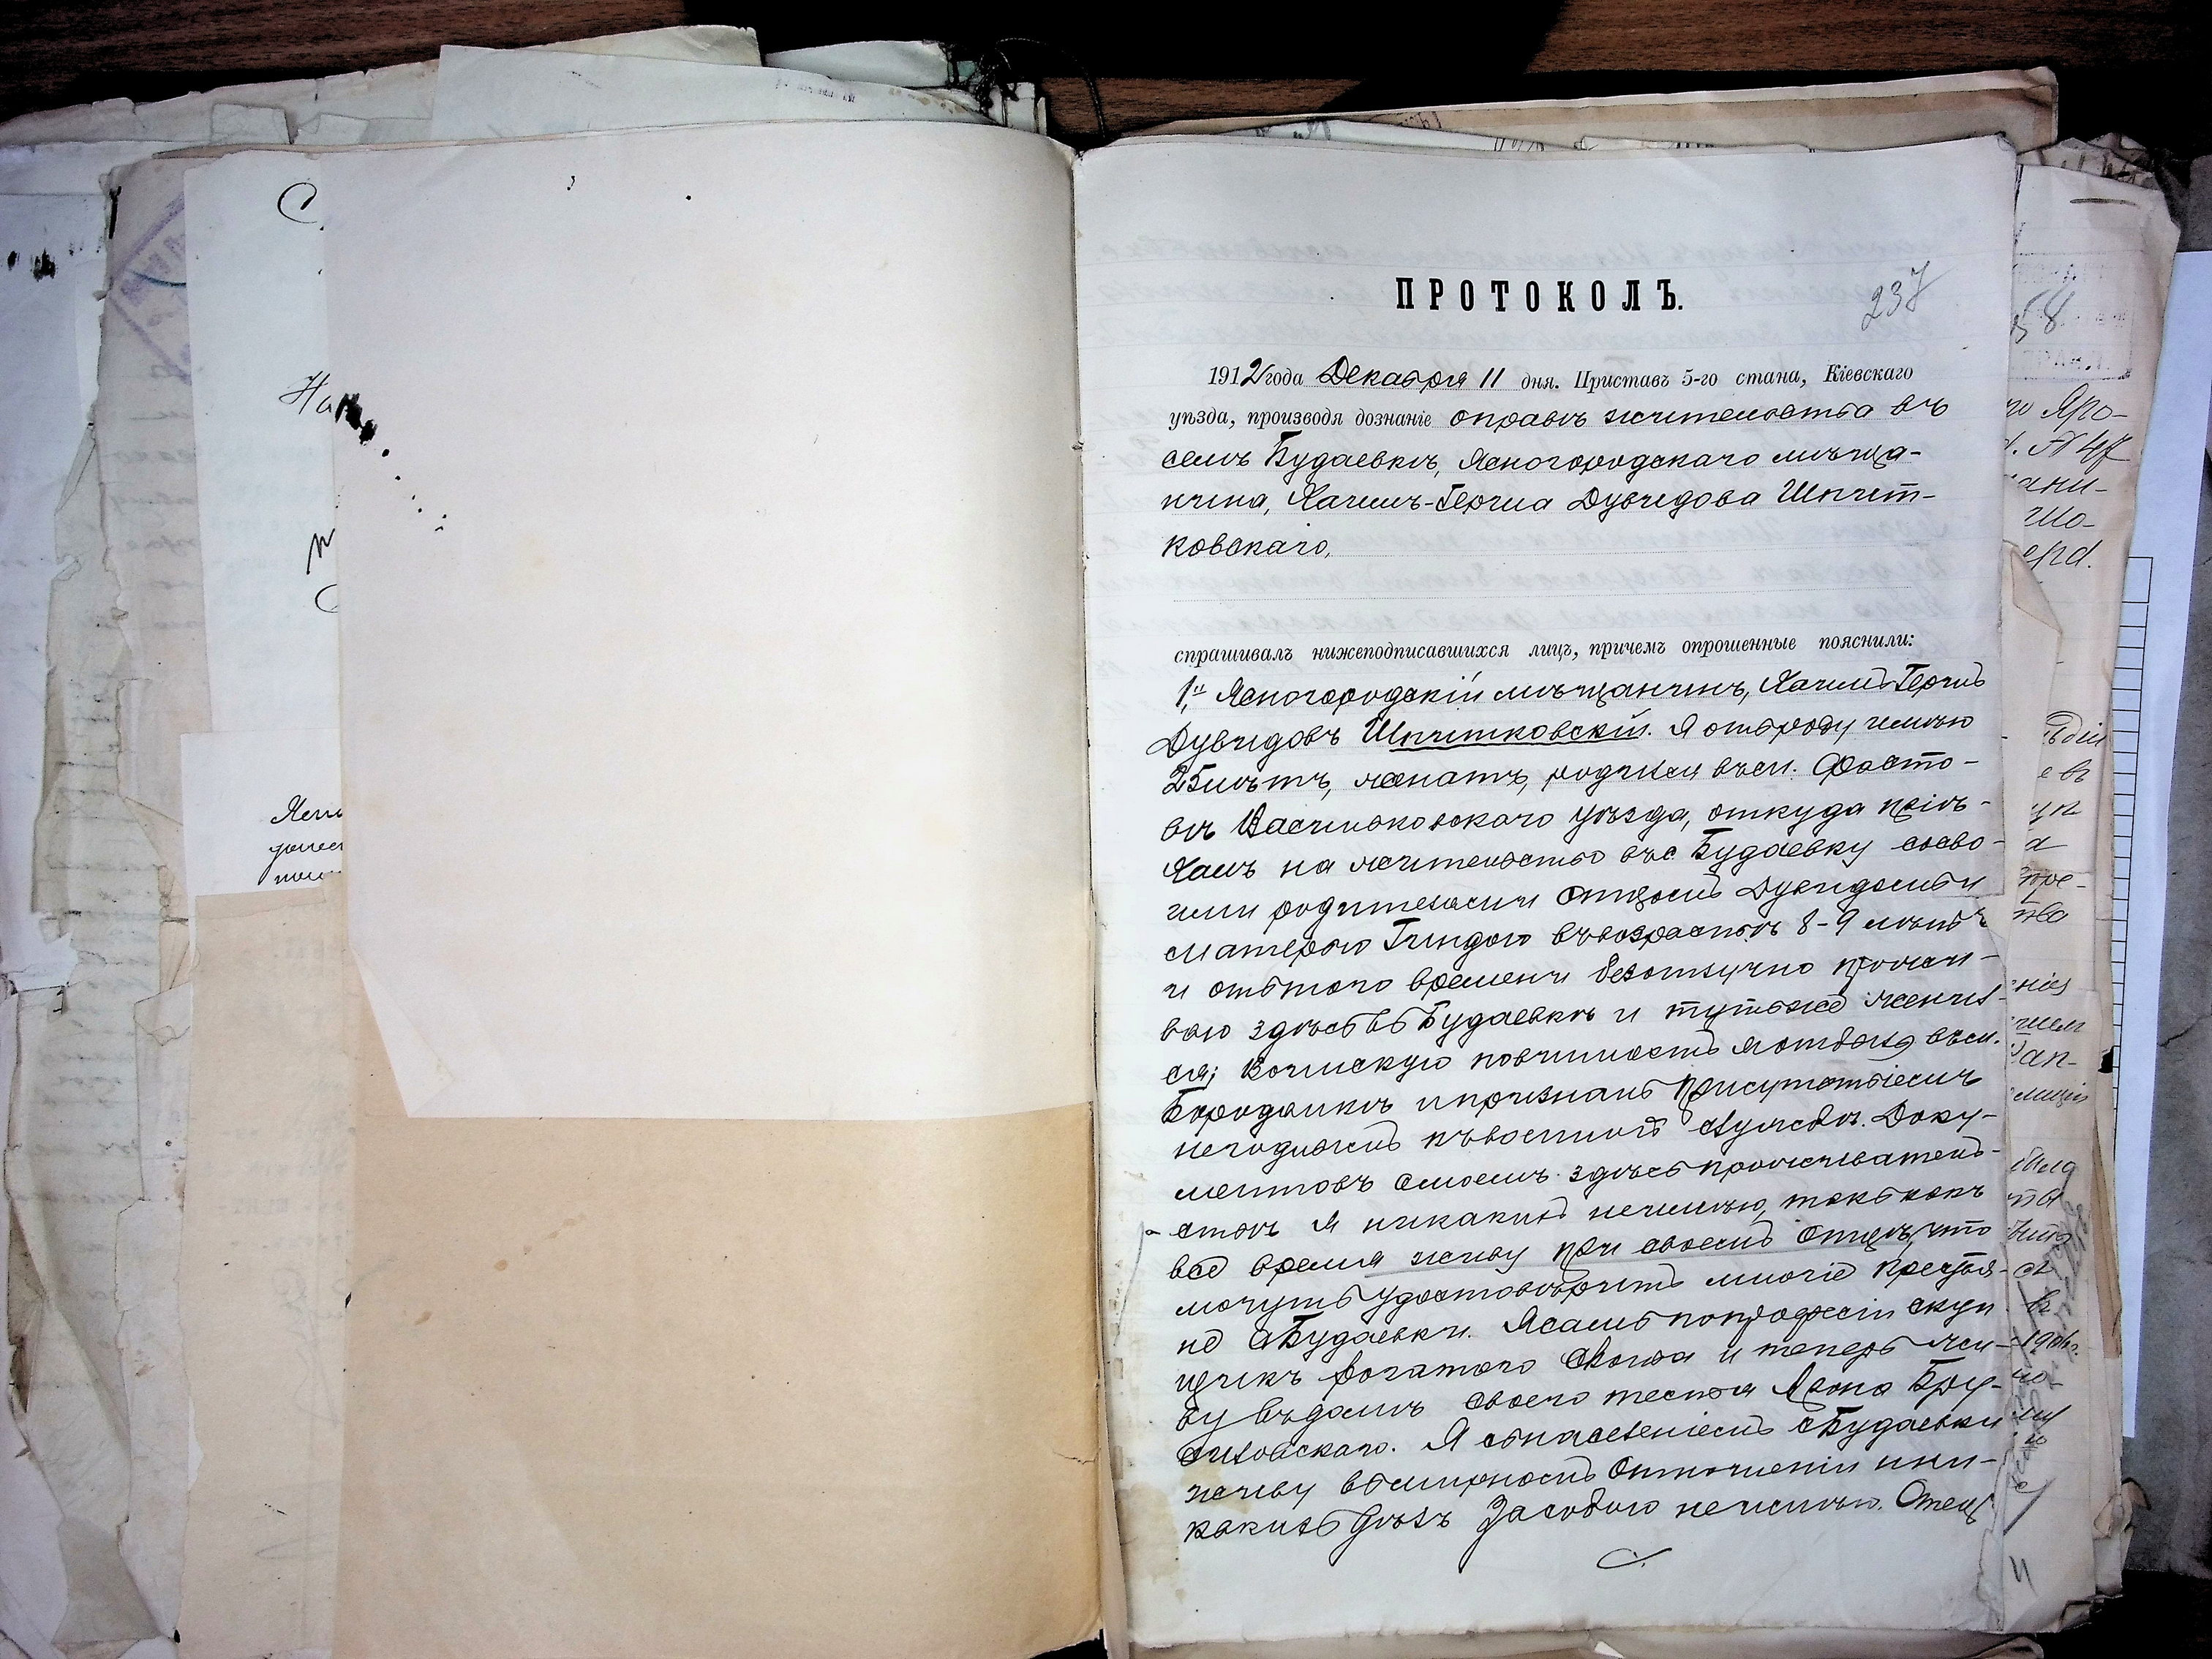 ПРОТОКОЛЪ.
237
1912 года Декабря 11 дня. Приставъ 5-го стана, Кіевскаго
уѣзда, производя дознаніе о правѣ жительства въ
селѣ Будаевкѣ, Ясногородскаго мѣща-
нина, Хаимъ-Герша Дувидова Шпит-
ковскаго,
спрашивалъ нижеподписавшихся лицъ, причемъ опрошенные пояснили:
1, Ясногородскій мѣщанинъ, Хаимъ Гершъ
Дувидовъ Шпитковскій. Я отъ роду имѣю
25 лѣтъ, женатъ, родился въ м. Фасто-
вѣ Васильковскаго уѣзда, откуда пріѣ-
халъ на жительство въ с. Будаевку со сво-
ими родителями отцомъ Дувидомъ и
матерью Гиндою въ возрастѣ 8-9 лѣтъ
и отъ того времени безотлучно прожи-
ваю здѣсь въ Будаевкѣ и тутъ же женил-
ся; Воинскую повинность я отбылъ въ м.
Бородянкѣ и признанъ Присутствіемъ
негоднымъ къ военной службѣ. Доку-
ментовъ о моемъ здѣсь прожи­ватель-
ствѣ я никакихъ не имѣю, такъ какъ
все время живу при своемъ отцѣ, что
могутъ удостовѣрить многіе крестья-
не с Будаевки. Я самъ по профессіи скуп
щикъ рогатого скота и теперь жи-
ву въ домѣ своего тестя Арона Бру-
силовскаго. Я съ населеніемъ с Будаевки
живу въ мирномъ отношеніи и ни-
какихъ дѣлъ за собою не имѣю. Отецъ